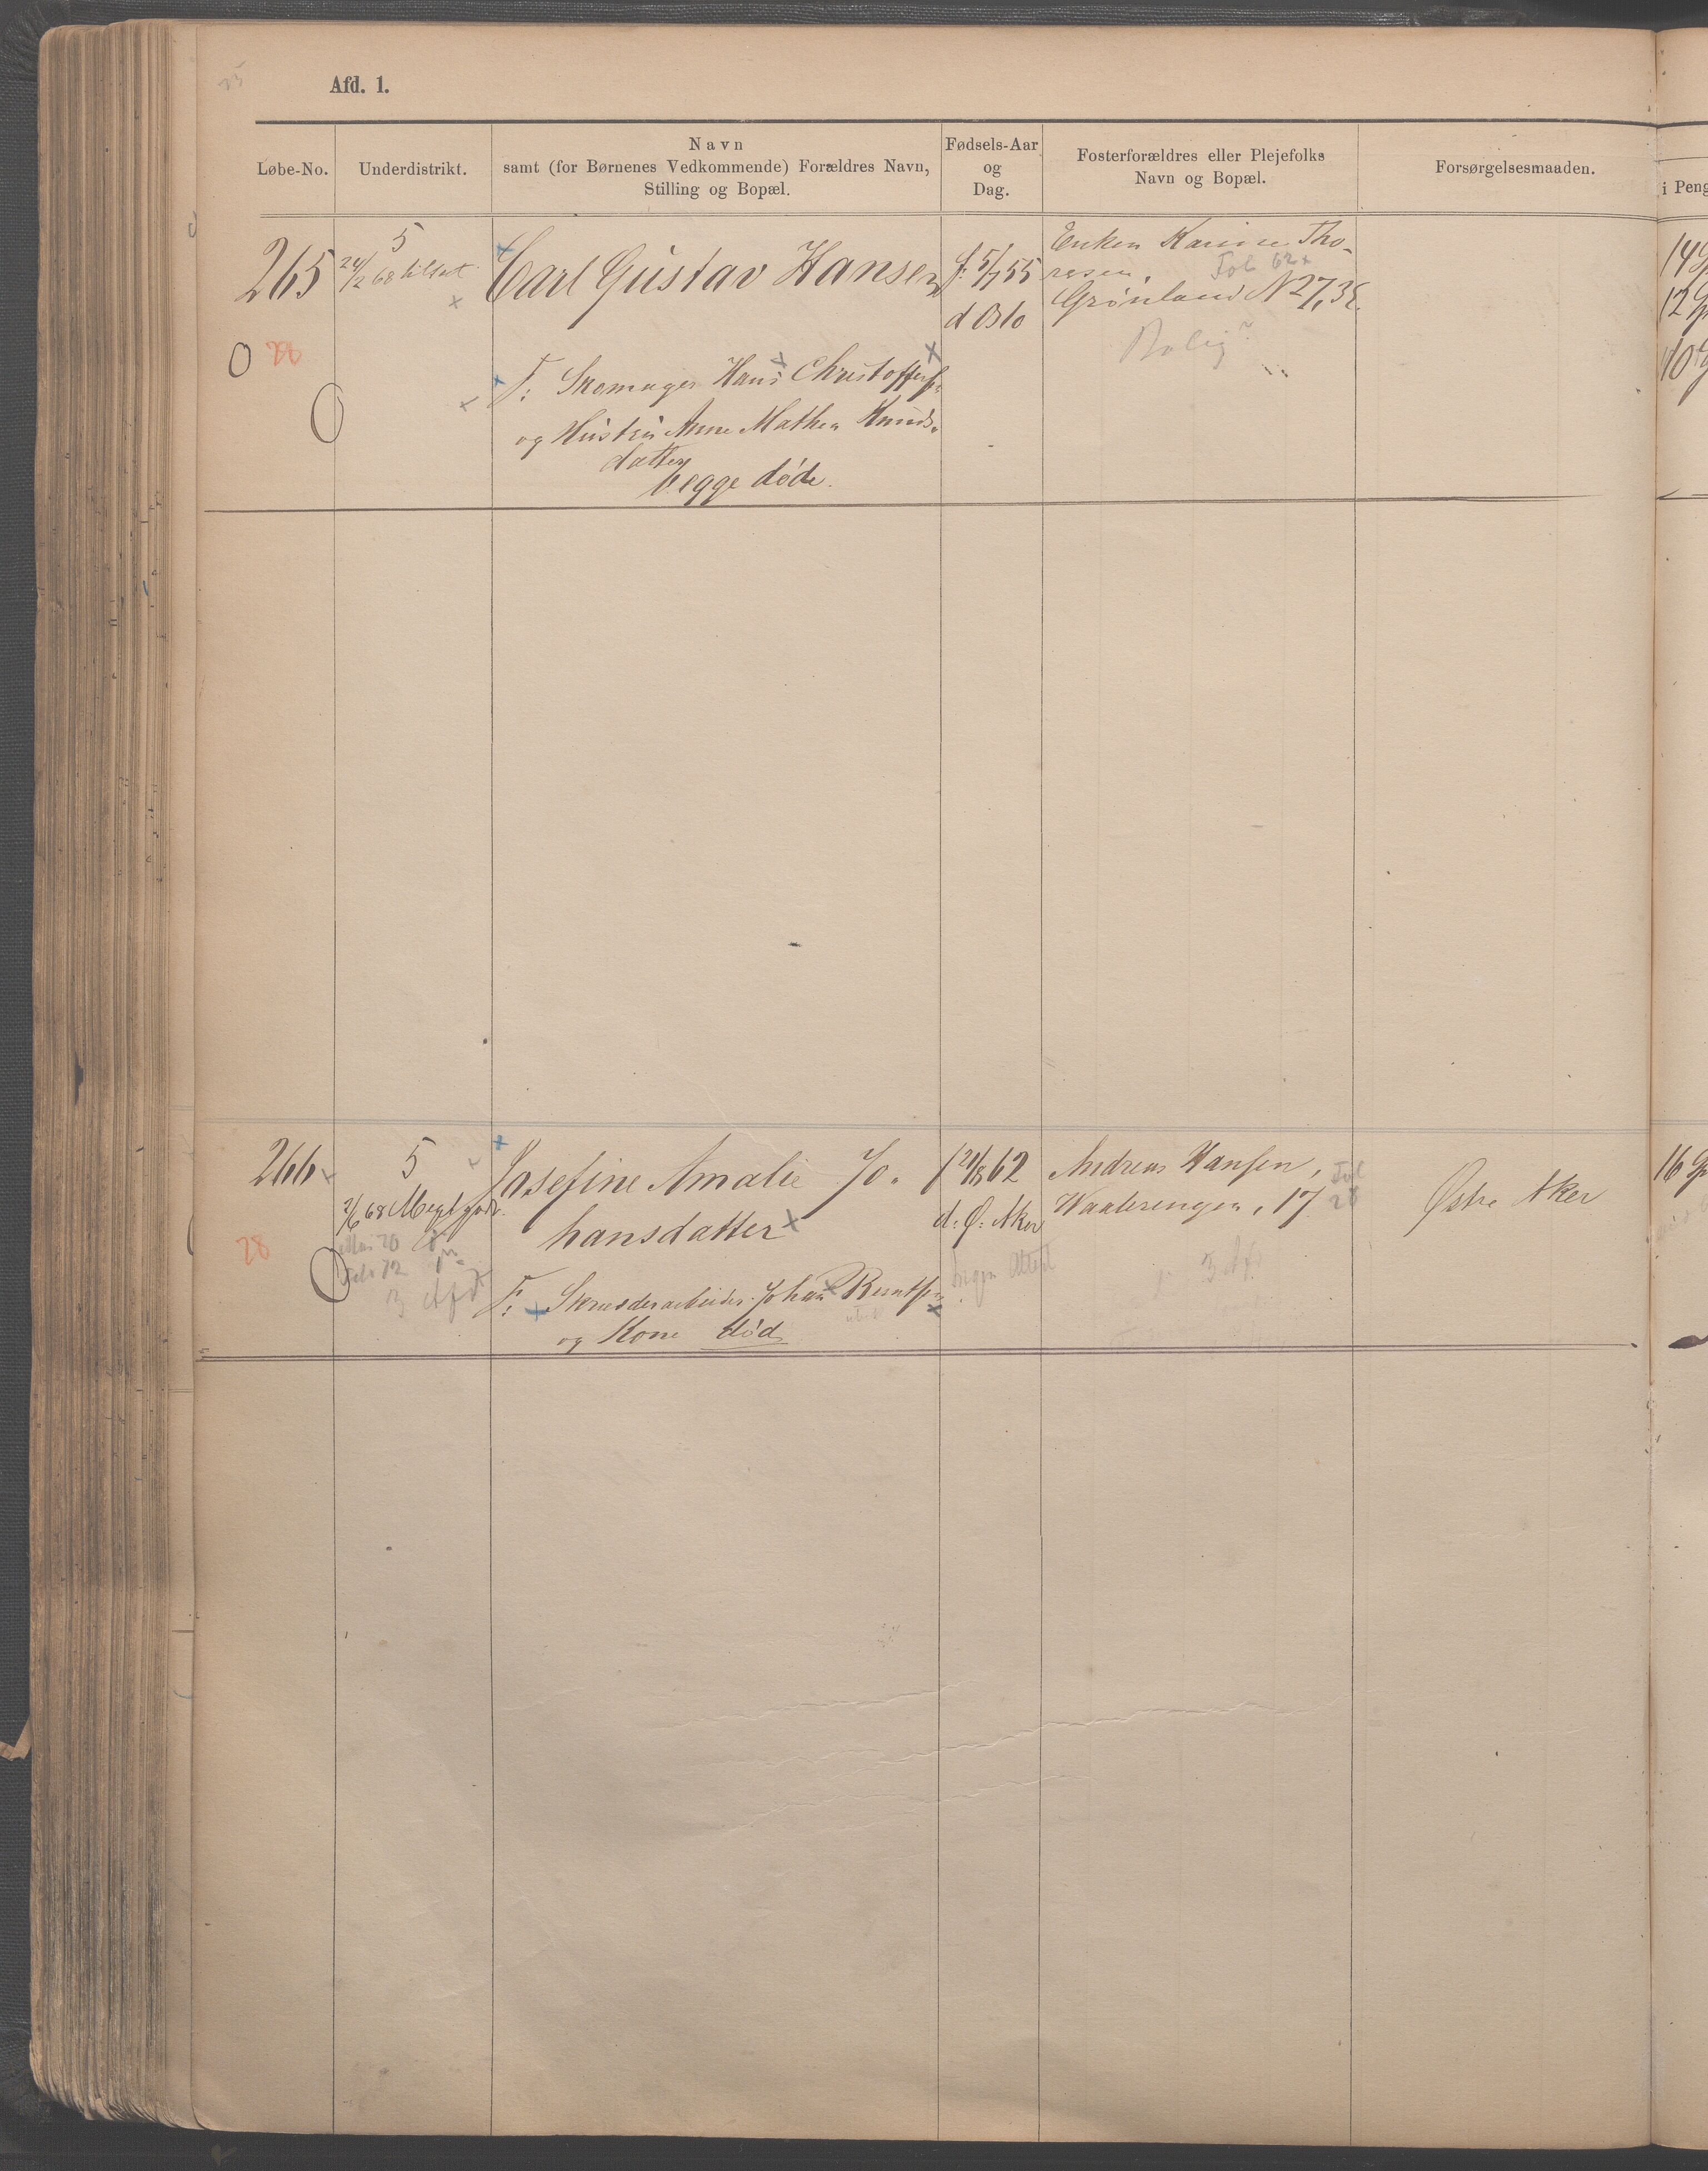 Afd. 1.
Løbe-No.
Underdistrikt.
Navn
samt (for Børnenes Vedkommende) Forældres Navn,
Stilling og Bopæl.
Fødsels-Aar
og
Dag.
Fosterforældres eller Plejefolks
Navn og Bopæl.
Forsørgelsesmaaden.
i Peng
265
5
24/2 68 tilset
Carl Gustav Hansen
f. 5/7 55
d Oslo
Enken Karine Tho-
resen.
Fol 62
Grønland N 27, 38.
Bolig?
28
F: Skomager Hans Christoffers.
og Hustru Anne Mathea Knuds-
datter
begge døde.
266
5
2/6 68 Meget godt.
Mai 70
Febr 72
3 Afd
28
Josefine Amalie Jo-
hansdatter
F: Skrædderarbeider Johan Berntsen
og Kone død
62
d. Ø: Aker
Ingen Attest
Andreas Hansen,
Waalerengen, 17
Fol
28
3 Afd
Østre Aker
14
12
10
16